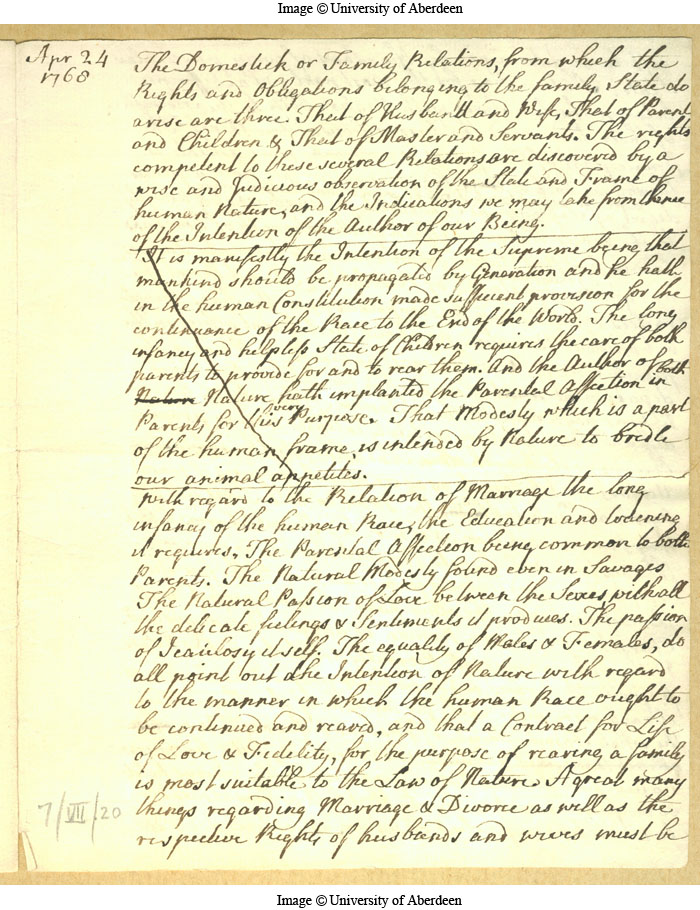 Image © University of Aberdeen
Apr 24
1768
The Domestick or Family Relations, from which the
Rights and Obligations belonging to the family State do
arise are three. That of Husband and Wife, That of Parent
and Children & That of Master and Servants. The rights
competent to these several Relations are discovered by a
wise and Judicious observation of the State and Frame of
human Nature, and the Indications we may take from thence
of the Intention of the Author of our Being.
It is manifestly the Intention of the Supreme being that
mankind should be propagated by Generation and he hath
in the human Constitution made sufficient provision for the
continuance of the Race to the End of the World. The long
infancy and helpless State of Children requires the care of both
parents to provide for and to rear them. And the Author of both
Nature Nature hath implanted the Parental Affection in
Parents for this very Purpose. That Modesty which is a part
of the human frame is intended by Nature to bridle
our animal appetites.
With regard to the Relation of Marriage the long
infancy of the human Race, the Education and
it requires, The Parental Affection being common to both
Parents. The Natural Modesty found even in Savages
The Natural Passion of Love between the Sexes with all
the delicate feelings & Sentiments it produces. The passion
of Jealousy itself. The equality of Males & Females, do
all point out the Intention of Nature with regard
to the manner in which the human Race ought to
be continued and reared, and that a Contract for Life
of Love & Fidelity, for the purpose of rearing a family
is most suitable to the Law of Nature. A great many
things regarding Marriage & Divorce as well as the
respective Rights of husbands and wives must be
7/VII/20
Image © University of Aberdeen